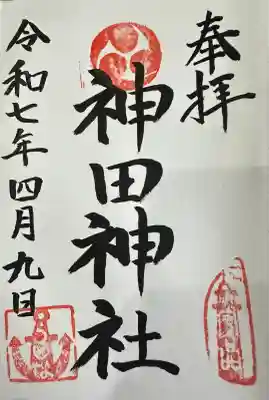 奉拝
神田神社
令和七年四月九日